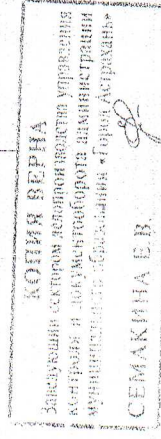 КОПИЯ ВЕРНА
Заведующий сектором делопроизводства управления
контроля и документооборота администрации
муниципального образования «Город Астрахань»
СЕМАКИНА Е.В.